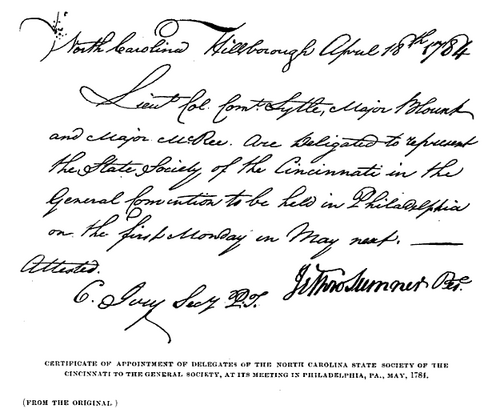 North Carolina Hillborough April 18th 1784
Lieut. Col. Comt. Lytle, Major Blount
and Major McRee. Are Deligated to represent
the State Society of the Cincinnati in the
General Convintion to be held in Philadelphia
on the first Monday in May next.
Attested.
C. Ivey Secy P.T. Jethro Sumner Pes.
CERTIFICATE OF APPOINTMENT OF DELEGATES OF THE NORTH CAROLINA STATE SOCIETY OF THE
CINCINNATI TO THE GENERAL SOCIETY, AT ITS MEETING IN PHILADELPHIA, PA., MAY, 1784.
(FROM THE ORIGINAL)